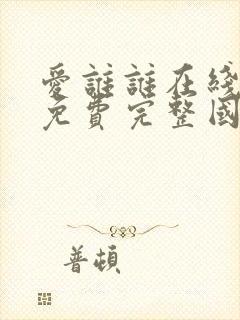 愛誰誰在綫
免費完整國
普頓